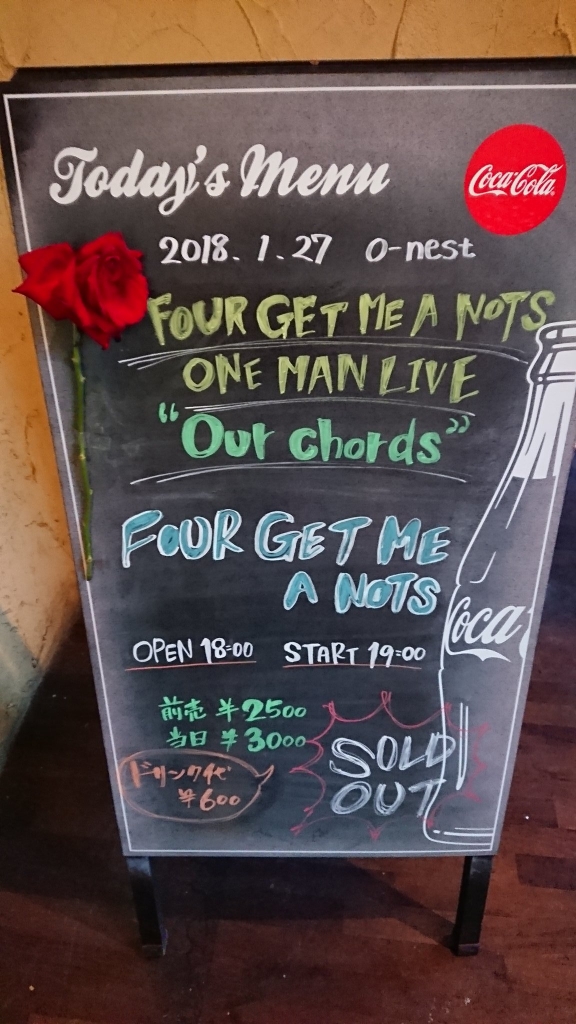 Today's Menu
Coca-Cola
2018.1.27 O-nest
FOUR GET ME A NOTS
ONE MAN LIVE
"Our chords"
FOUR GET ME
A NOTS
Coca
OPEN 18:00 START 19:00
前売 ¥2500
当日 ¥3000
ドリンク代
¥600
SOLD
OUT